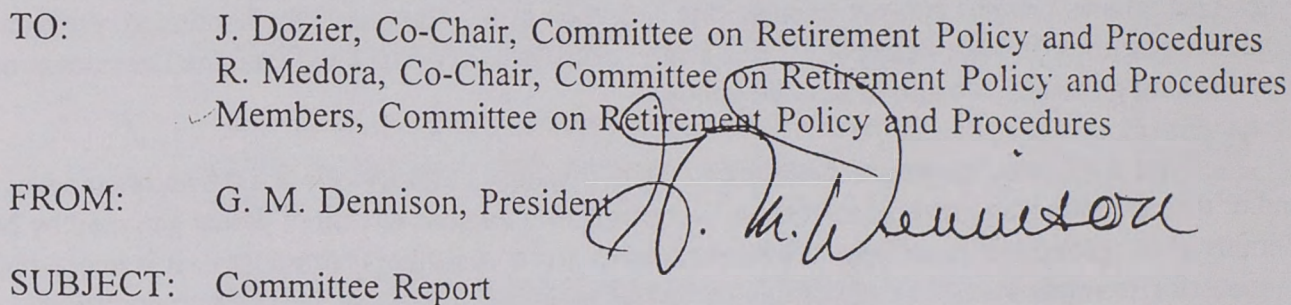 TO: J. Dozier, Co-Chair, Committee on Retirement Policy and Procedures
R. Medora, Co-Chair, Committee on Retirement Policy and Procedures
Members, Committee on Retirement Policy and Procedures
FROM: G. M. Dennison, President
G. M. Dennison
SUBJECT: Committee Report